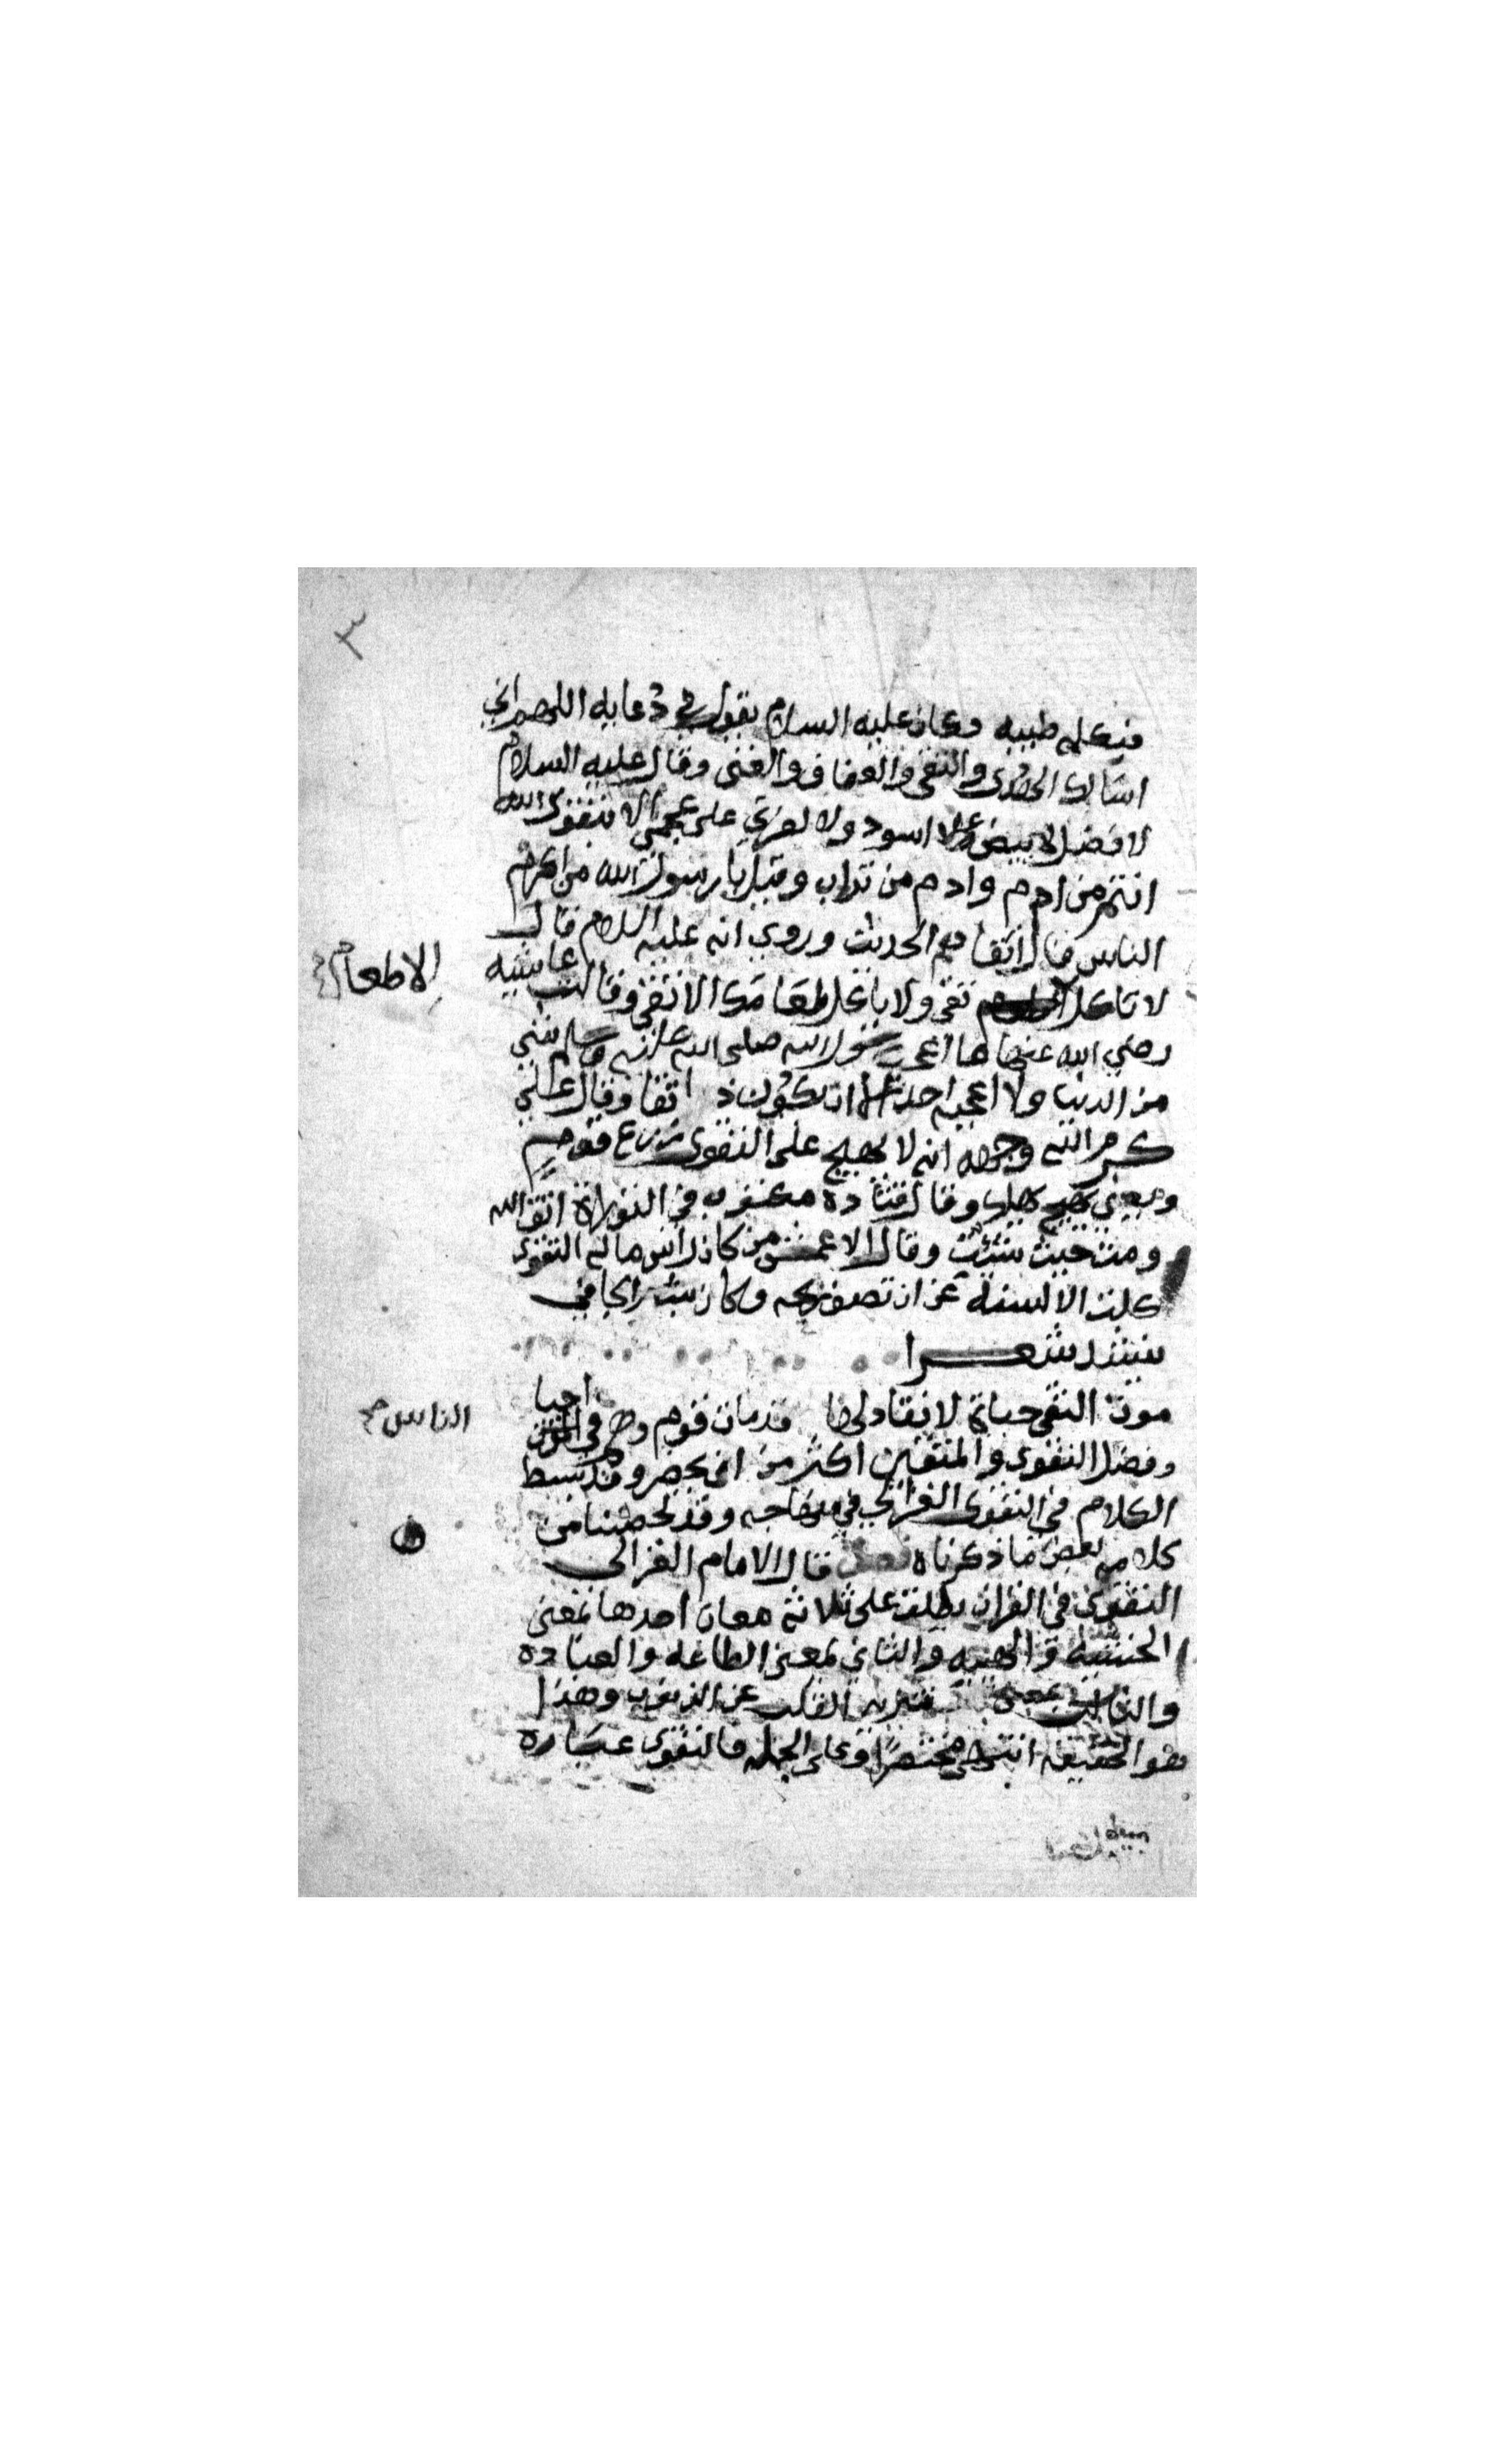 ٣
وكان عليه السلام يقول في دعايه اللهم اني
اسالك الهدى والتقى والعفاف والغنى وقال عليه السلام
لا فضل لابيض على اسود ولا لعربي على عجمي الا بتقوى الله
انتم من ادم وادم من تراب وقيل يا رسول الله من اكرم
الناس قال اتقاهم الحديث وروي انه عليه السلام قال
لا تاكل الا طعام تقي ولا ياكل طعامك الا تقي وقالت عايشه
رضي الله عنها ما اعجب رسول الله صلى الله عليه وسلم شي
من الدنيا ولا اعجبه احد الا ان يكون ذا تقا وقال علي
كرم الله وجهه انه لا يهيج على التقوى زرع قوم
ومعنى يهيج يهلك وقال قتادة مكتوب في التوراة اتق الله
ومت حيث شئت وقال الاعمش من كان راس ماله التقوى
كلت الالسنة عن ان تصف ربحه وكان بشر الحافي
ينشد شعرا
موت التقي حياة لا نفاد لها قد مات قوم وهم في الناس احيا
وفضل التقوى والمتقين اكثر من ان يحصر وقد بسط
الكلام في التقوى الغزالي في منهاجه وقد لخصنا من
كلامه بعض ما ذكرناه فصل قال الامام الغزالي
التقوى في القران يطلق على ثلاثة معان احدها بمعنى
الخشية والهيبه والثاني بمعنى الطاعه والعباده
والثالث بمعنى تنزيه القلب عن الذنوب وهذا
هو الحقيقه انتهى مختصرا وعلى الجمله فالتقوى عباره
الا طعام
الناس